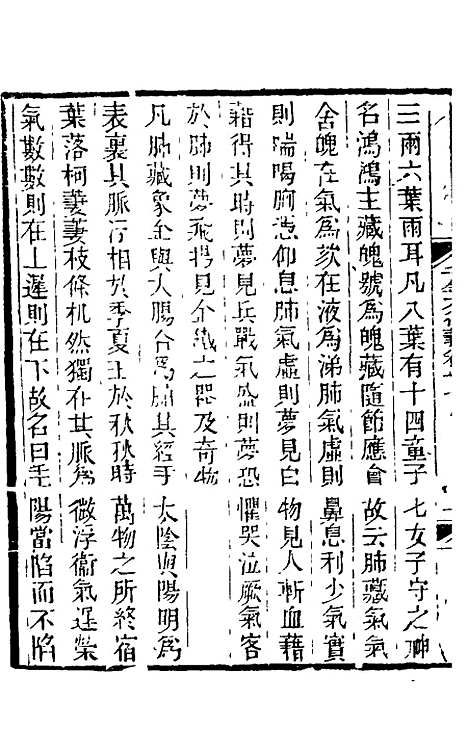 三兩六葉兩耳凡八葉有十四童子七女子守之神
名鴻鴻主藏魄號為魄藏隨節應會故云肺藏氣氣
舍魄在氣為欬在液為涕肺氣虛則鼻息利少氣實
則喘喝胸憑仰息肺氣虛則夢見白物見人斬血藉
藉得其時則夢見兵戰氣盛則夢恐懼哭泣厥氣客
於肺則夢飛揚見金鐵之器及奇物
凡肺藏象金與大腸合為腑其經手太陰與陽明為
表裏其脈浮相於季夏王於秋秋時萬物之所終宿
葉落柯萋萋枝條机然獨在其脈為微浮衛氣遲榮
氣數數則在上遲則在下故名曰毛陽當陷而不陷